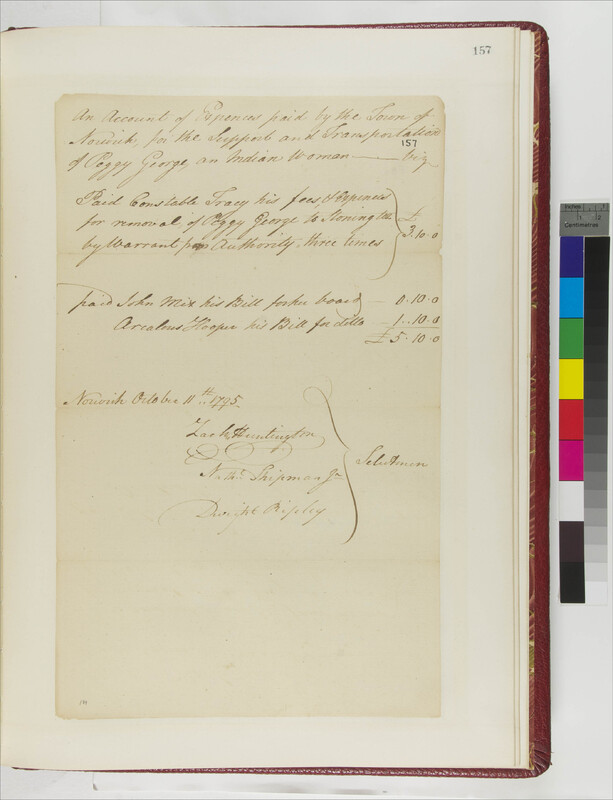 157
An Account of Expences paid by the Town of
Norwich, for the Support and Transportation
157
of Peggy George, an Indian Woman — Viz
Paid Constable Tracy his fees, & Expences
for removal of Peggy George to Stonington
by Warrant from Authority, three times
£
3.10.0
paid John Mix his Bill for her board — 0.10.0
Hooper his Bill for ditto — 1..10.0
£ 5.10.0
Norwich October 11th.. 1795.
Zach Huntington
Nathl. Shipman Jr
Dwight Ripley
Selectmen
Inches
Centimetres